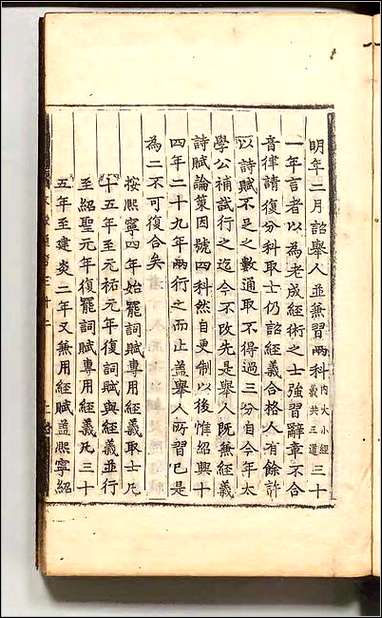 明年二月詔舉人並兼習兩科內大小經義共三道三十
一年言者以為老成經術之士強習辭章不合
音律請復分科取士仍詔經義合格人有餘許
以詩賦不足之數通取不得過三分自今年太
學公補試行之迄今不改先是舉人旣兼經義
詩賦論策因號四科然自更制以後惟紹興十
四年二十九年兩行之而止蓋舉人所習已是
為二不可復合矣
按熙寧四年始罷詞賦專用經義取士凡
十五年至元祐元年復詞賦與經義並行
至紹聖元年復罷詞賦專用經義凡三十
五年至建炎二年又兼用經賦蓋熙寧紹